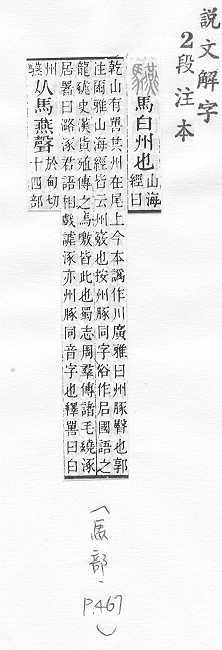 説文解字
2段注本
驠馬白州也山海
經曰
乾山有嘼其州在尾上今本譌作川廣雅曰州豚臀也郭
注爾雅山海經皆云州竅也按州豚同字俗作𡰪國語之
龍史漢貨殖傳之馬噭皆此也蜀志周羣傳諸毛繞涿
居署曰潞涿君語相戲謔涿亦州豚同音字也釋嘼曰白
州驠从馬燕聲於甸切
十四部
(馬部、P.467)